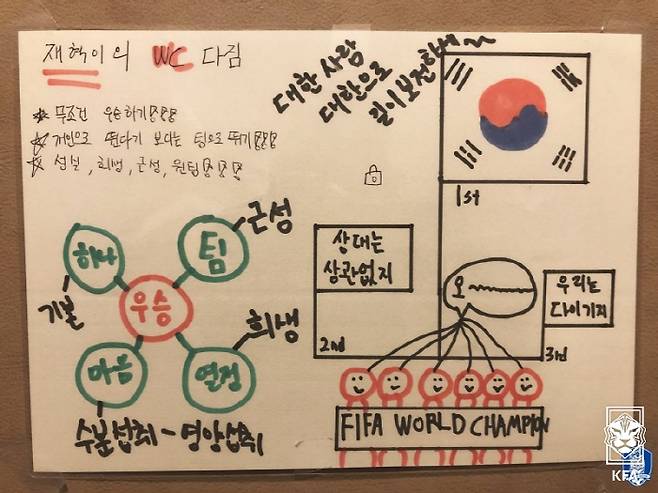 재혁이의 WC 다짐
대한 사람
대한으로
길이 보전하세~
무조건 우승하기!!!
개인으로 뛴다기 보다는 팀으로 뛰기!!!
성실, 희생, 근성, 원팀!!!!
1st
상대는
상관없지
2nd
오~
우리는
다 이기지
3rd
하나
기본
팀
근성
우승
마음
수분섭취 - 영양섭취
열정
희생
FIFA WORLD CHAMPION
KFA